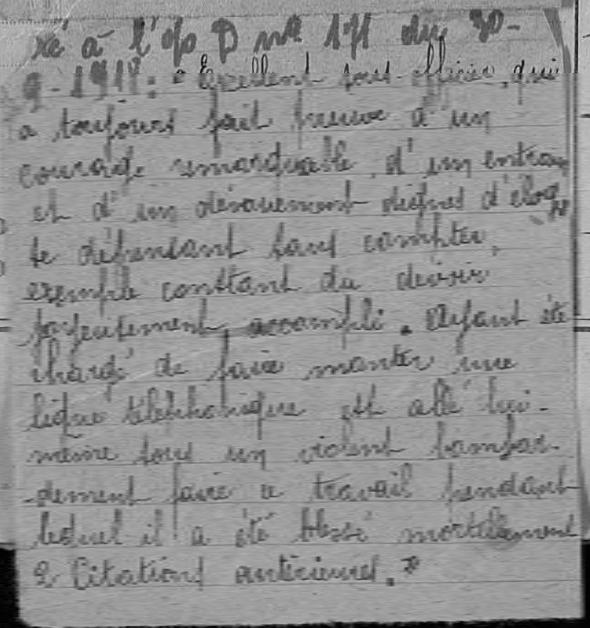 té à l'o/o D n° 171 du 30-
9-1918: "Excellent sous-officier, qui
a toujours fait preuve d'un
courage remarquable, d'un entrain
et d'un dévouement dignes d'éloges
se dépensant sans compter,
exemple constant du devoir
parfaitement accompli. Ayant été
chargé de faire monter une
ligne téléphonique est allé lui-
même sous un violent bombar-
-dement faire ce travail pendant
lequel il a été blessé mortellement
2 Citations antérieures."